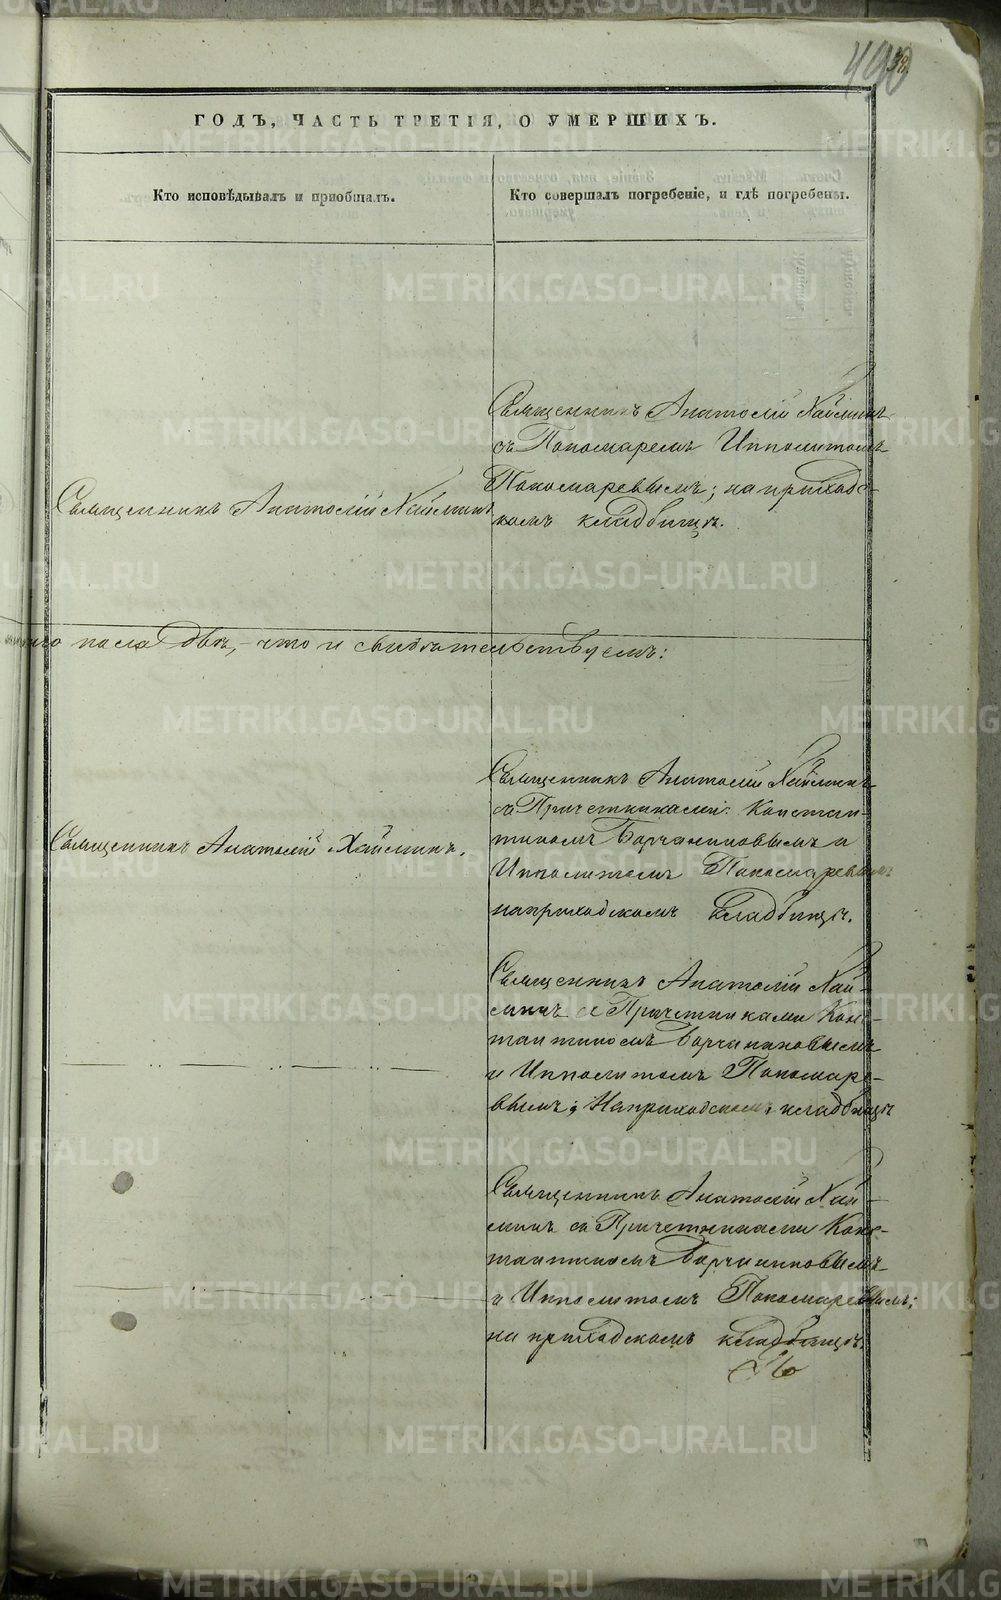 490
38
ГОДЪ, ЧАСТЬ ТРЕТІЯ, О УМЕРШИХЪ.
Кто исповѣдывалъ и пріобщалъ.
Кто совершалъ погребеніе, и гдѣ погребены.
Священникъ Анатолій Хайминъ
Священникъ Анатолій Хайминъ
съ Пономаремъ Ипполитомъ
Пономаревымъ; на приходс-
комъ кладбищѣ.
что и свидѣтельствуемъ:
Священникъ Анатолій Хайминъ.
Священникъ Анатолій Хайминъ
съ Причетниками: Констан-
тиномъ Барчаниновымъ и
Ипполитомъ Пономаревымъ
на приходскомъ кладбищѣ.
Священникъ Анатолій Хай-
минъ съ Причетниками Конс-
тантиномъ Барчаниновымъ
и Ипполитомъ Пономаре-
вымъ; На приходскомъ кладбищѣ
Священникъ Анатолій Хай-
минъ съ Причетниками Конс-
тантиномъ Барчаниновымъ
и Ипполитомъ Пономаревымъ;
на приходскомъ кладбищѣ.
METRIKI.GASO-URAL.RU